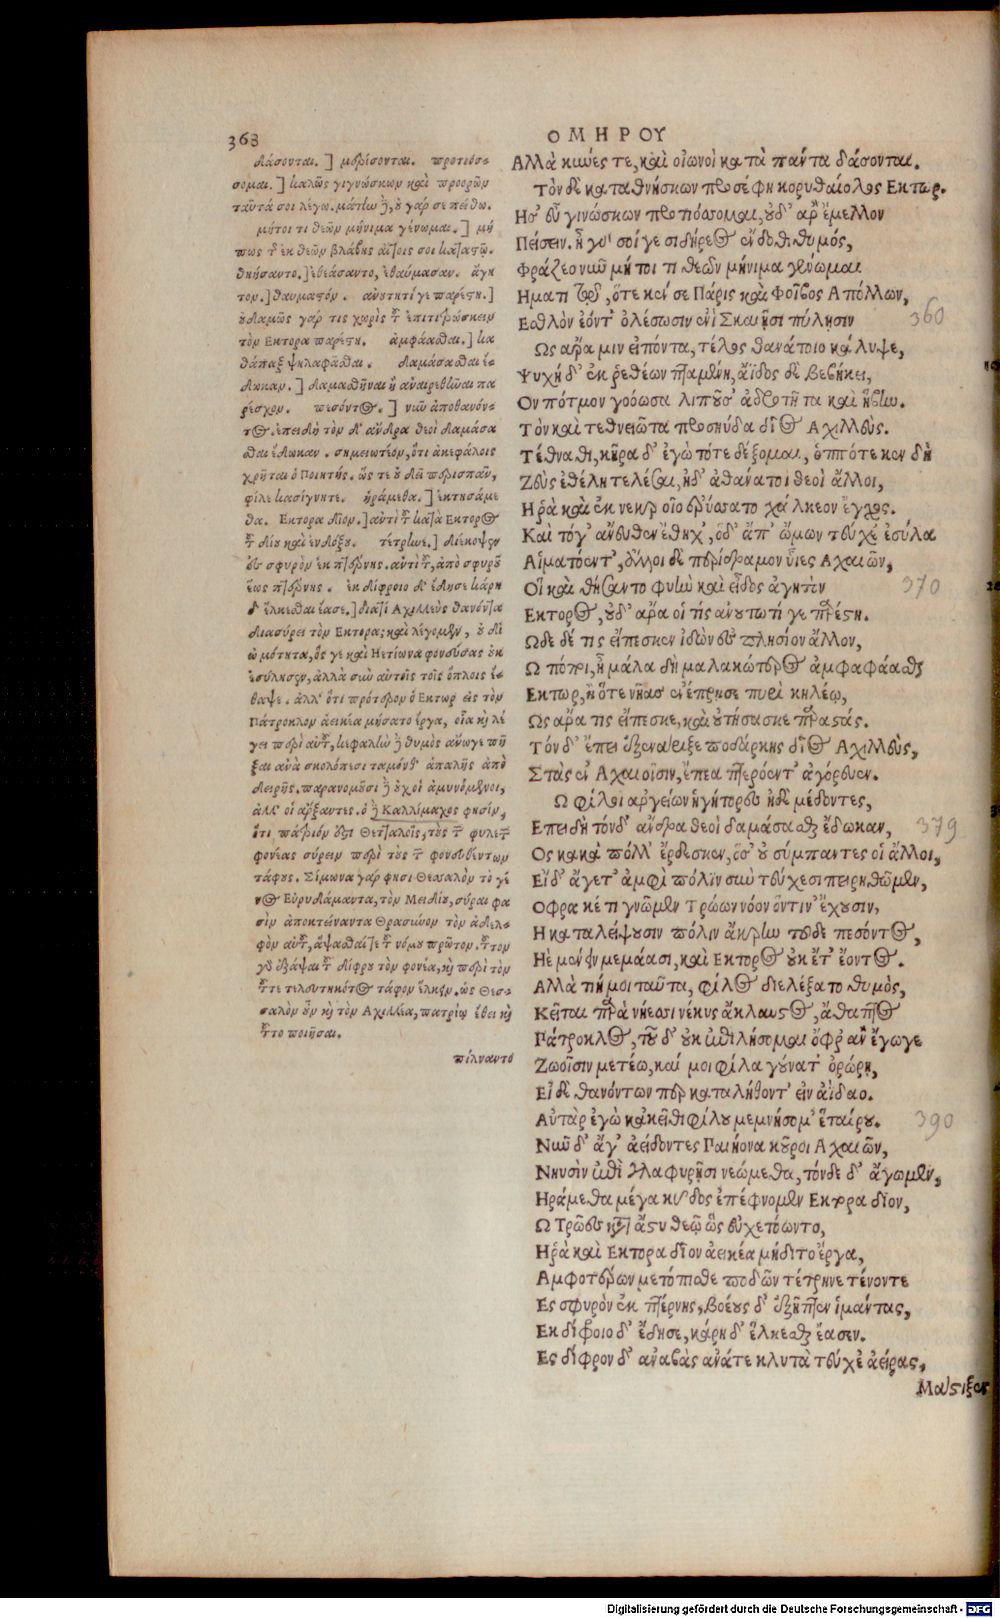 368
ΟΜΗΡΟΥ
δάσονται.] μερίσονται. προτιόσ-
σομαι.] καλῶς γιγνώσκων καὶ προορῶν
ταῦτά σοι λέγω. μάτην δὲ, οὐ γάρ σε πείθω.
μήτοι τι θεῶν μήνιμα γένωμαι.] μή
πως τ ἐκ θεῶν βλάβης αἴτιός σοι καταστῶ.
θηήσαντο.] ἐθεάσαντο, ἐθαύμασαν. ἀγη
τον.] θαυμαστόν. ἀνουτητί γε παρέστη.]
οὐδαμῶς γάρ τις χωρὶς τοῦ ἐπιτιτρώσκειν
τὸν Εκτορα παρέστη. ἀμφάασθαι.] κα
θάπαξ ψηλαφᾶσθαι. δαμάσασθαι ἔ-
δωκαν.] δαμασθῆναι ἢ ἀναιρεθῆναι πα
ρέσχον. πεσόντος.] νῦν ἀποθανόν-
τος. ἐπειδὴ τὸν δ' ἄνδρα θεοὶ δαμάσα
σθαι ἔδωκαν. σημειωτέον, ὅτι ἀκεφάλοις
χρῆται ὁ Ποιητής. ὥς τε οὐ δεῖ περισπᾶν,
φίλε κασίγνητε. ἠράμεθα.] ἐκτησάμε
θα. Εκτορα δῖον.] ἀντὶ τοῦ κατὰ Εκτορος
τοῦ δίου καὶ ἐνδόξου. τέτρηνε.] διέκοψεν
εἰς σφυρὸν ἐκ πτέρνης. ἀντὶ τοῦ, ἀπὸ σφυροῦ
ἕως πτέρνης. ἐκ δίφροιο δ' ἔδησε κάρη
δ' ἕλκεσθαι ἔασε.] διατί Αχιλλεὺς θανόντα
διασύρει τὸν Εκτορα; καὶ λέγομεν, οὐ δι'
ὠμότητα, ὅς γε καὶ Ηετίωνα φονεύσας οὐκ
ἐσύλησεν, ἀλλὰ σὺν αὐτοῖς τοῖς ὅπλοις ἔ-
θαψε. ἀλλ' ὅτι πρότερον ὁ Εκτωρ εἰς τὸν
Πάτροκλον ἀεικέα μήσατο ἔργα, οἷα καὶ λέ
γει περὶ αὐτοῦ, κεφαλὴν δὲ θυμὸς ἄνωγε πῆ
ξαι ἀνὰ σκολόπεσι ταμόνθ' ἁπαλῆς ἀπὸ
δειρῆς. παρανομοῦσι δὲ οὐχ οἱ ἀμυνόμενοι,
ἀλλ' οἱ ἄρξαντες. ὁ δὲ Καλλίμαχος φησὶν,
ὅτι πάτριόν ἐστι Θετταλοῖς, τοὺς τῶν φιλτάτων
φονέας σύρειν περὶ τοὺς τῶν φονευθέντων
τάφους. Σίμωνα γάρ φησι Θεσσαλὸν τὸ γέ
νος Εὐρυδάμαντα, τὸν Μειδίου, σύραι φα
σὶν ἀποκτείναντα Θρασύλλον τὸν ἀδελ-
φὸν αὐτοῦ, ἄρξασθαί τε τοῦ νόμου πρῶτον. τοῦτον
γὰρ ἐξάψαι τοῦ δίφρου τὸν φονέα, καὶ περὶ τὸν
τοῦ τετελευτηκότος τάφον ἕλκειν. ὡς Θεσ-
σαλὸν οὖν καὶ τὸν Αχιλλέα, πατρίῳ ἔθει καὶ
τοῦτο ποιῆσαι.
πίλναντο
Αλλὰ κύνες τε, καὶ οἰωνοὶ κατὰ πάντα δάσονται.
Τὸν δὲ καταθνήσκων προσέφη κορυθαίολος Εκτωρ.
Ησ' εὖ γινώσκων προτιόσσομαι, οὐδ' ἄρ' ἔμελλον
Πείσειν. ἦ γὰρ σοί γε σιδήρεος ἔνδοθι θυμός,
Φράζεο νῦν μή τοί τι θεῶν μήνιμα γένωμαι
Ηματι τῷ, ὅτε κέν σε Πάρις καὶ Φοῖβος Απόλλων,
Εσθλὸν ἐόντ' ὀλέσωσιν ἐνὶ Σκαιῇσι πύλῃσιν
360
Ως ἄρα μιν εἰπόντα, τέλος θανάτοιο κάλυψε,
Ψυχὴ δ' ἐκ ῥεθέων πταμένη, ἄϊδος δὲ βεβήκει,
Ον πότμον γοόωσα λιποῦσ' ἀδροτῆτα καὶ ἥβην.
Τὸν καὶ τεθνειῶτα προσηύδα δῖος Αχιλλεύς.
Τέθναθι, κῆρα δ' ἐγὼ τότε δέξομαι, ὁππότε κεν δὴ
Ζεὺς ἐθέλῃ τελέσαι, ἠδ' ἀθάνατοι θεοὶ ἄλλοι,
Η ῥὰ καὶ ἐκ νεκροῖο ἐρύσσατο χάλκεον ἔγχος.
Καὶ τόγ' ἄνευθεν ἔθηχ', ὁ δ' ἀπ' ὤμων τεύχε' ἐσύλα
Αἱματόεντ', ἄλλοι δὲ περίδραμον υἷες Αχαιῶν,
Οἳ καὶ θηήσαντο φυὴν καὶ εἶδος ἀγητὸν
370
Εκτορος, οὐδ' ἄρα οἵ τις ἀνουτητί γε παρέστη.
Ωδε δέ τις εἴπεσκεν ἰδὼν ἐς πλησίον ἄλλον,
Ω πόποι, ἦ μάλα δὴ μαλακώτερος ἀμφαφάασθαι
Εκτωρ, ἢ ὅτε νῆας ἐνέπρησε πυρὶ κηλέῳ,
Ως ἄρα τις εἴπεσκε, καὶ οὐτήσασκε παραστάς.
Τόν δ' ἐπεὶ ἐξενάριξε ποδάρκης δῖος Αχιλλεὺς,
Στὰς ἐν Αχαιοῖσιν, ἔπεα πτερόεντ' ἀγόρευεν.
Ω φίλοι ἀργείων ἡγήτορες ἠδὲ μέδοντες,
Επειδὴ τόνδ' ἄνδρα θεοὶ δαμάσασθαι ἔδωκαν,
379
Ος κακὰ πόλλ' ἔρδεσκεν, ὅσ' οὐ σύμπαντες οἱ ἄλλοι,
Εἰ δ' ἄγετ' ἀμφὶ πόλϊν σὺν τεύχεσι πειρηθῶμεν,
Οφρα κέ τι γνῶμεν Τρώων νόον ὅντιν' ἔχουσιν,
Η καταλείψουσιν πόλιν ἄκρην τοῦδε πεσόντος,
Ηὲ μένειν μεμάασι, καὶ Εκτορος οὐκ ἔτ' ἐόντος.
Αλλὰ τίη μοι ταῦτα, φίλος διελέξατο θυμὸς,
Κεῖται παρὰ νήεσσι νέκυς ἄκλαυστος, ἄθαπτος
Πάτροκλος, τοῦ δ' οὐκ ἐπιλήσομαι ὄφρ' ἂν ἔγωγε
Ζωοῖσιν μετέω, καί μοι φίλα γούνατ' ὀρώρῃ,
Εἰ δὲ θανόντων περ καταλήθοντ' εἰν ἀΐδαο.
Αὐτὰρ ἐγὼ κἀκεῖθι φίλου μεμνήσομ' ἑταίρου.
390
Νῦν δ' ἄγ' ἀείδοντες Παιήονα κοῦροι Αχαιῶν,
Νηυσὶν ἐπὶ γλαφυρῇσι νεώμεθα, τόνδε δ' ἄγωμεν,
Ηράμεθα μέγα κῦδος ἐπέφνομεν Εκτορα δῖον,
Ω Τρῶες κατὰ ἄστυ θεῷ ὣς εὐχετόωντο,
Η ῥὰ καὶ Εκτορα δῖον ἀεικέα μήδετο ἔργα,
Αμφοτέρων μετόπισθε ποδῶν τέτρηνε τένοντε
Ες σφυρὸν ἐκ πτέρνης, βοέους δ' ἐξῆπτεν ἱμάντας,
Εκ δίφροιο δ' ἔδησε, κάρη δ' ἕλκεσθαι ἔασεν.
Ες δίφρον δ' ἀναβὰς ἀνάτε κλυτὰ τεύχε' ἀείρας,
Μάστιξεν
Digitalisierung gefördert durch die Deutsche Forschungsgemeinschaft - DFG